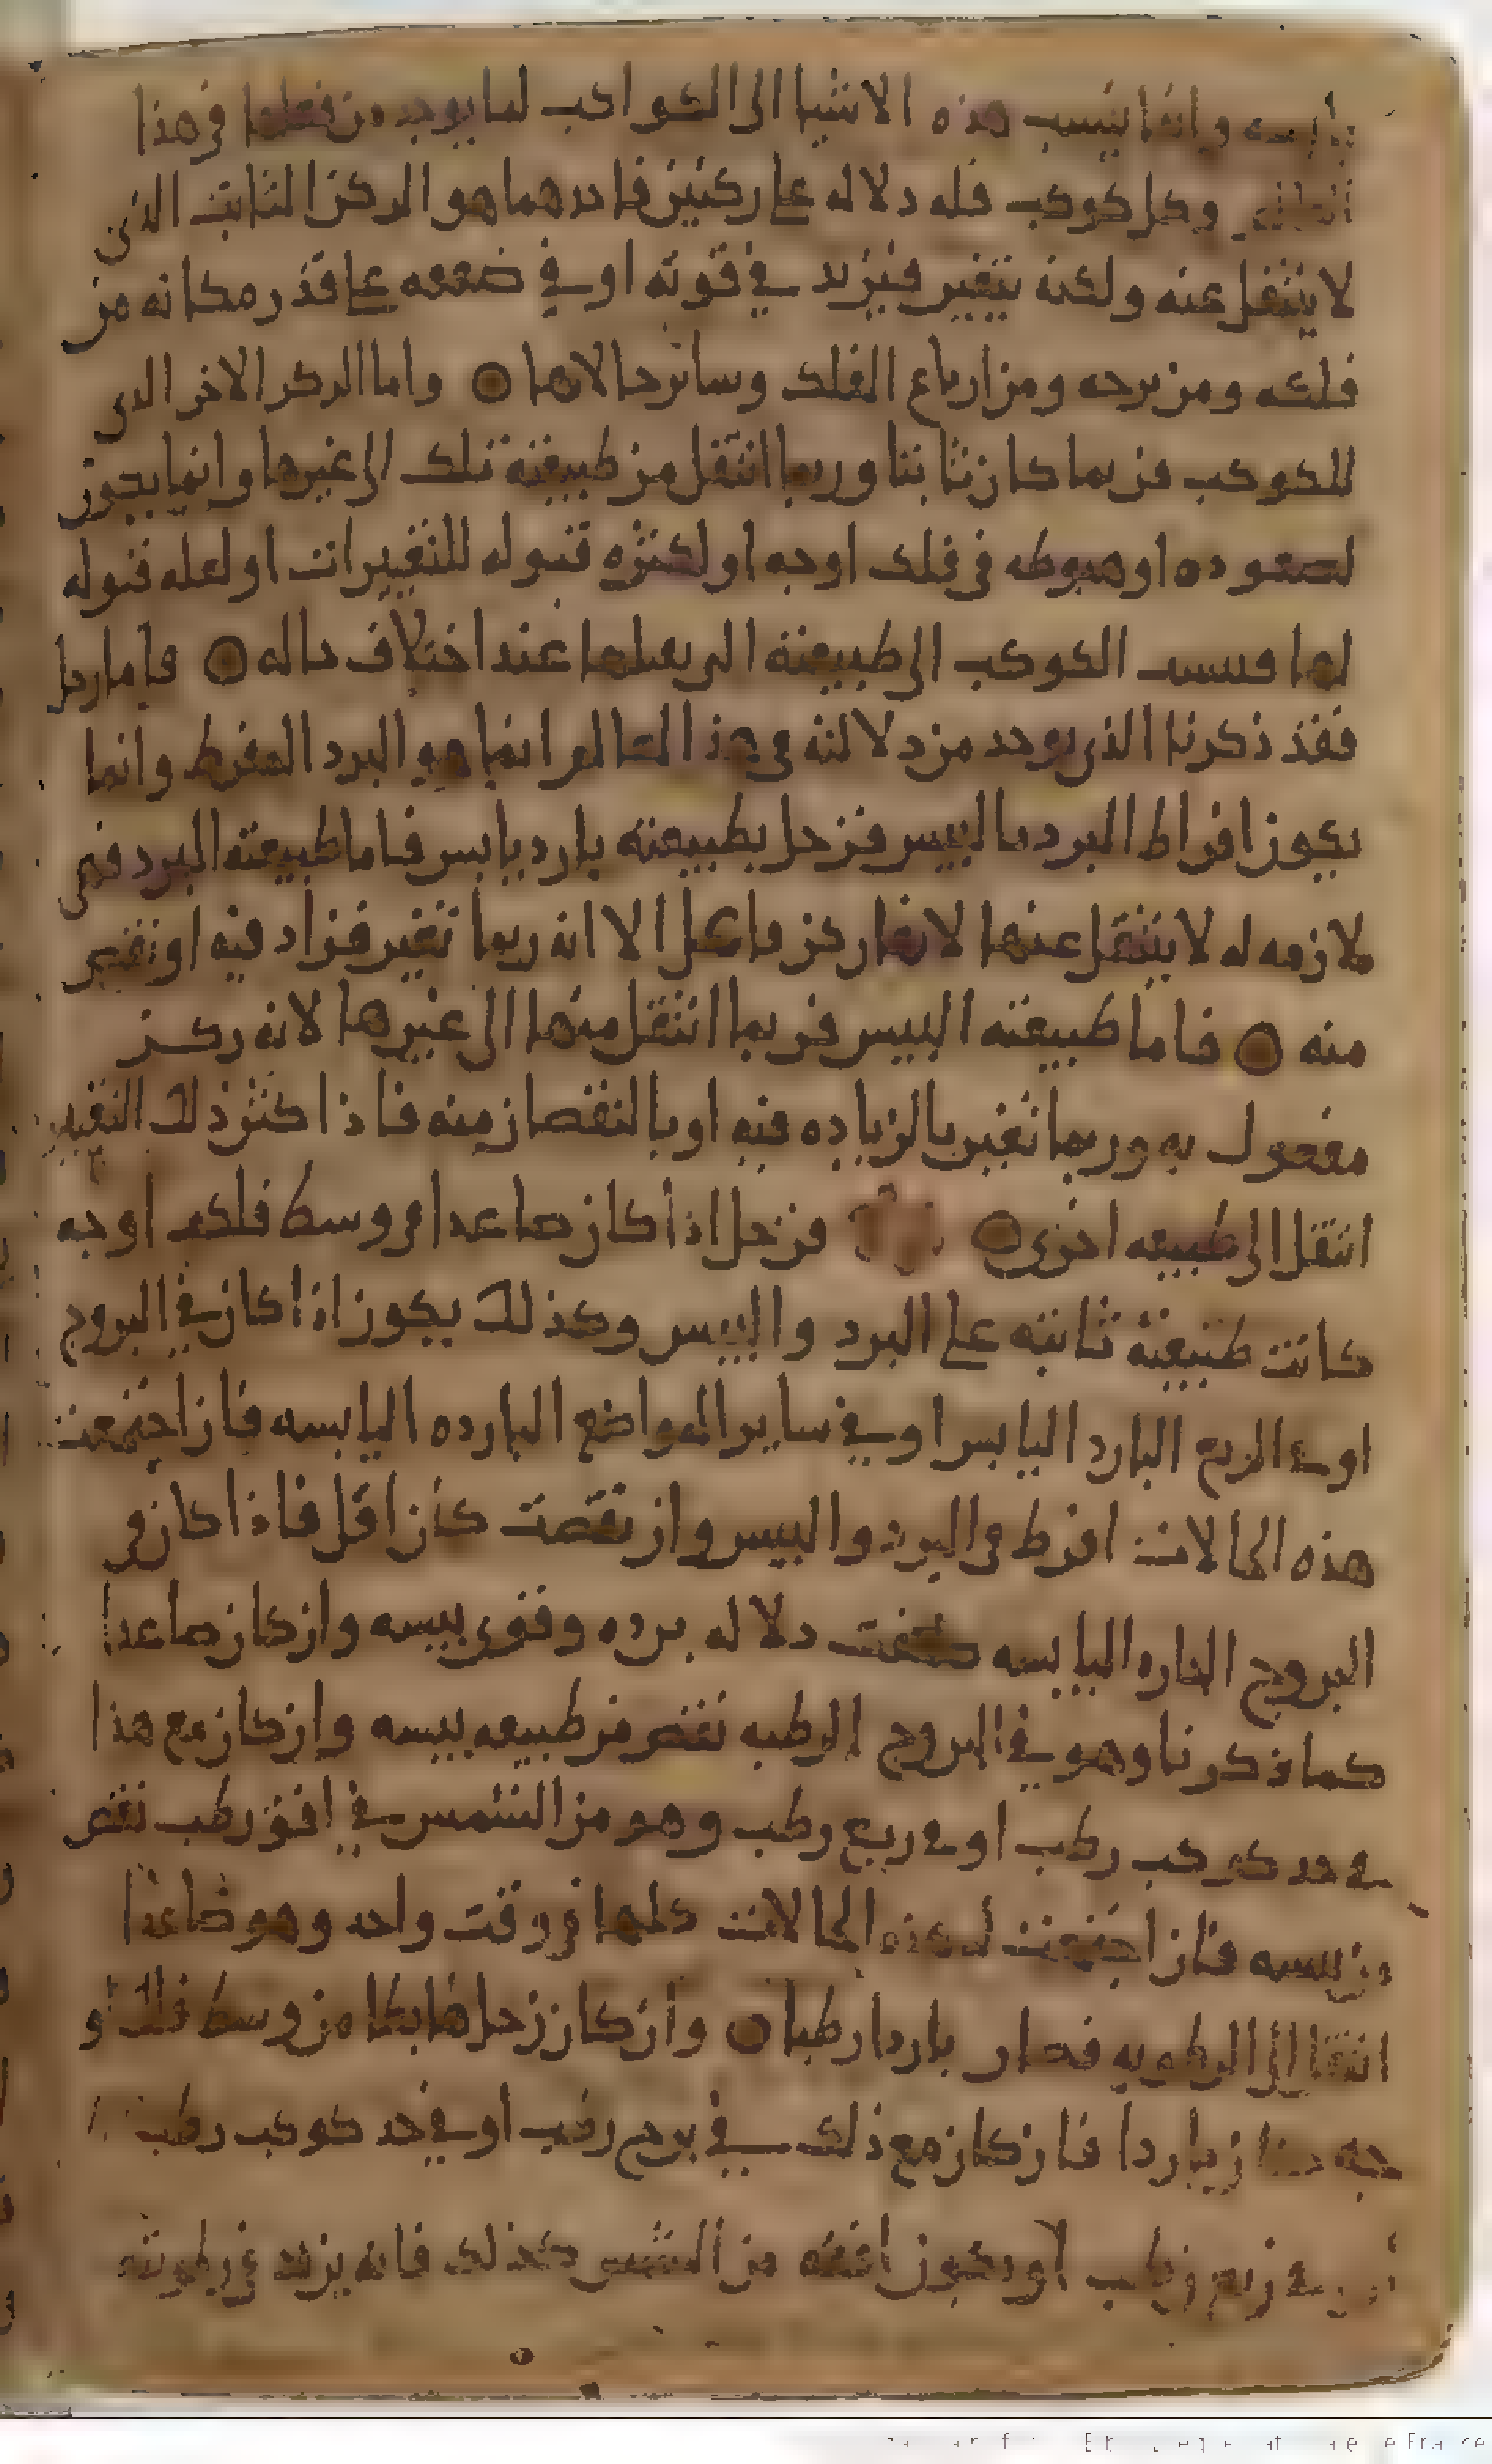 وانما ينسب هذه الاشيا الى الكواكب لما يوجد من فعلها في هذا
وكل كوكب فله دلاله على ركنين فاحدهما هو الركن الثابت الذي
لا ينتقل عنه ولكنه يتغير فيزيد في قوته او في ضعفه على قدر مكانه من
فلكه ومن برجه ومن ارباع الفلك وساير حالاتها ○ واما الركن الاخر الذي
للكوكب فربما كان ثابتا وربما انتقل من طبيعته تلك الى غيرها وانما يكون
لصعوده او هبوطه في فلك اوجه او لكثرة قبوله للتغييرات او لعله قبوله
لها فينسب الكوكب الى طبيعته التي يفعلها عند اختلاف حاله ○ فاما زحل
فقد ذكرنا الذي يوجد من دلالته في هذا العالم انما هو البرد المفرط وانما
يكون افراط البرد باليبس فزحل بطبيعته بارد يابس فاما طبيعته البرد فهي
ملازمه له لا ينتقل عنها لانها ركن فاعل الا انه ربما تغير فزاد فيه او نقص
منه ○ فاما طبيعته اليبس فربما انتقل منها الى غيرها لانه ركن
مفعول به وربما تغير بالزياده فيه او بالنقصان منه فاذا كثر ذلك التغيير
انتقل الى طبيعه اخرى ○ فزحل اذا كان صاعدا من وسط فلك اوجه
كانت طبيعته ثابته على البرد واليبس وكذلك يكون اذا كان في البروج
او في الربع البارد اليابس او في ساير المواضع البارده اليابسه فان اجتمعت
هذه الحالات افرط في البرد واليبس وان نقصت كان اقل فاذا كان في
البروج الحاره اليابسه ضعفت دلاله برده وقوي يبسه وان كان صاعدا
كما ذكرنا وهو في البروج الرطبه نقص من طبيعه يبسه وان كان مع هذا
في حد كوكب رطب او في ربع رطب وهو من الشمس في افق رطب نقص
من يبسه فان اجتمعت له هذه الحالات كلها في وقت واحد وهو صاعدا
انتقل الى الرطوبه فصار باردا رطبا ○ وان كان زحل هابطا من وسط فلك او
جه كان باردا فان كان مع ذلك في برج رطب او في حد كوكب رطب
او في ربع رطب او يكون افقه من الشمس كذلك فانه يزيد في رطوبته